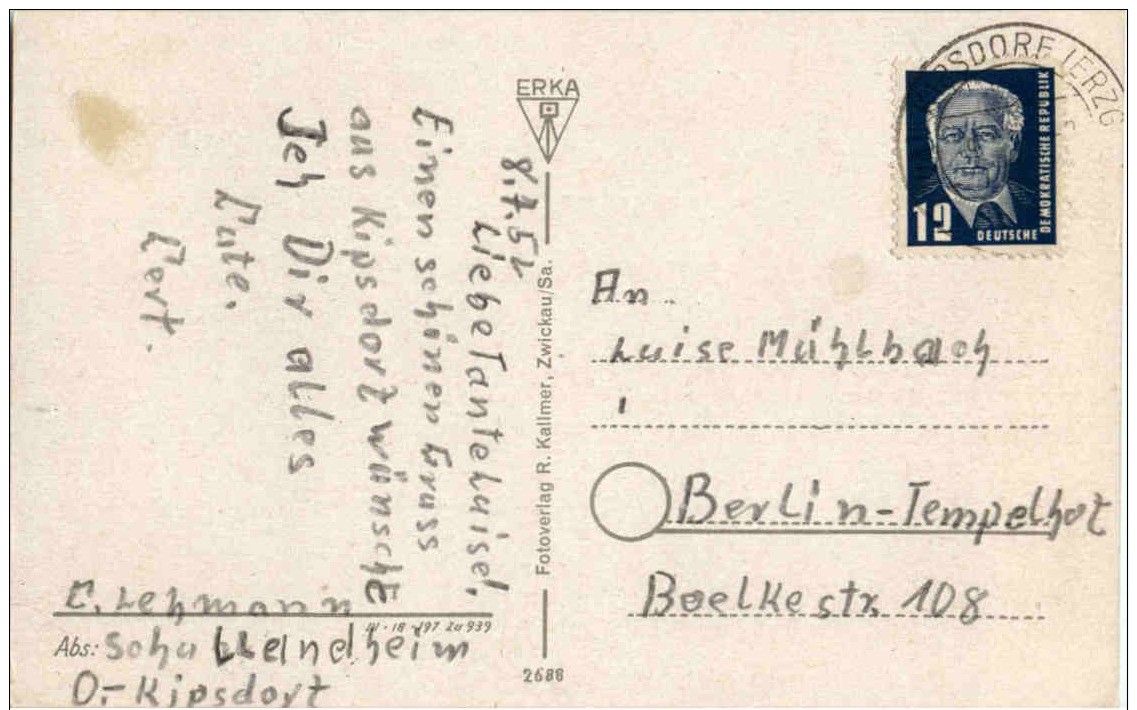 ERKA
8.7.51
Liebe Tante Luise!
Einen schönen Gruss
aus Kipsdorf wünscht
Ich Dir alles
Gute.
Gert.
Fotoverlag R. Kallmer, Zwickau/Sa.
2688
RSDORF (ERZG
12
DEUTSCHE
DEMOKRATISCHE REPUBLIK
An
Luise Mühlbach
Berlin-Tempelhof
Boelkestr. 108
G. Lehmann
Abs: Schullandheim
O.-Kipsdorf